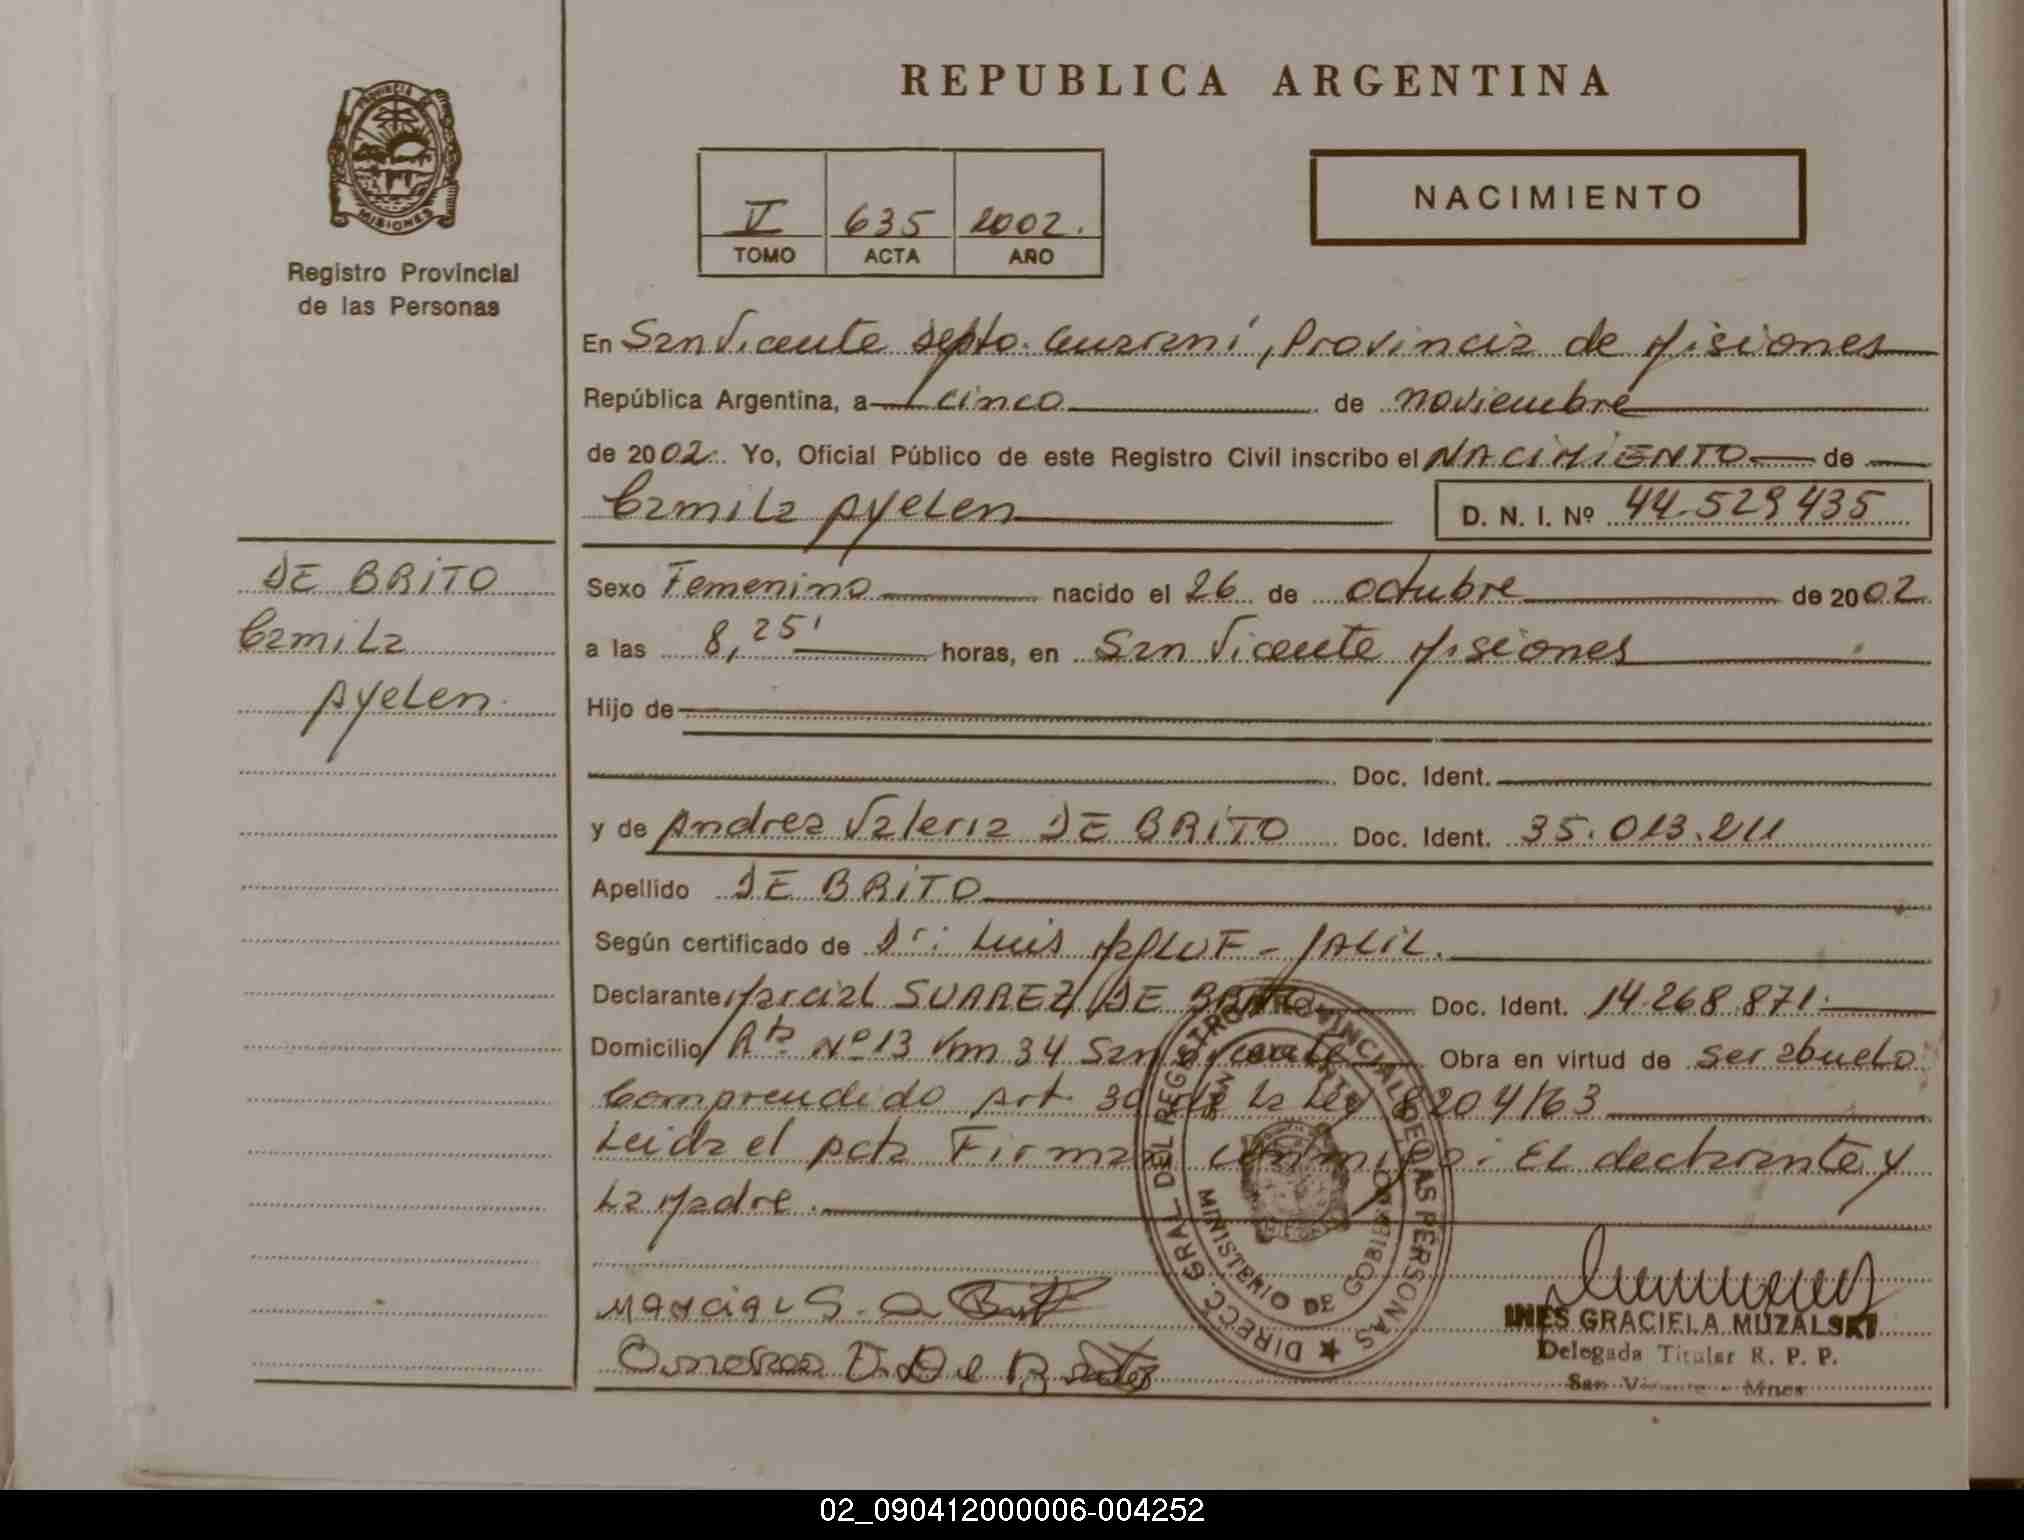 PROVINCIA DE
MISIONES
Registro Provincial
de las Personas
DE BRITO
Camila
Ayelen
REPUBLICA ARGENTINA
V 635 2002.
TOMO ACTA AÑO
NACIMIENTO
En San Vicente depto. Guaraní, Provincia de Misiones
República Argentina, a cinco de noviembre
de 2002. Yo, Oficial Público de este Registro Civil inscribo el NACIMIENTO de
Camila Ayelen
D. N. I. Nº 44.529435
Sexo Femenino nacido el 26 de octubre de 2002
a las 8,25' horas, en San Vicente Misiones
Hijo de
Doc. Ident.
y de Andrea Valeria DE BRITO Doc. Ident. 35.013.211
Apellido DE BRITO
Según certificado de Dr: Luis MALUF-JALIL.
Declarante Marcial SUAREZ DE BRITO Doc. Ident. 14.268.871.
Domicilio Rta Nº 13 Km 34 San Vicente Obra en virtud de ser abuelo
Comprendido Art. 30 de la Ley 8204/63
Leida el Acta Firman conmigo: El declarante y
La Madre.
Marcial S. de Brito
Andrea V. De Brito
DIRECC. GRAL. DEL REGISTRO PROVINCIAL DE LAS PERSONAS
MINISTERIO DE GOBIERNO
SAN VICENTE
INES GRACIELA MUZALSKI
Delegada Titular R. P. P.
San Vicente - Mnes
02_090412000006-004252